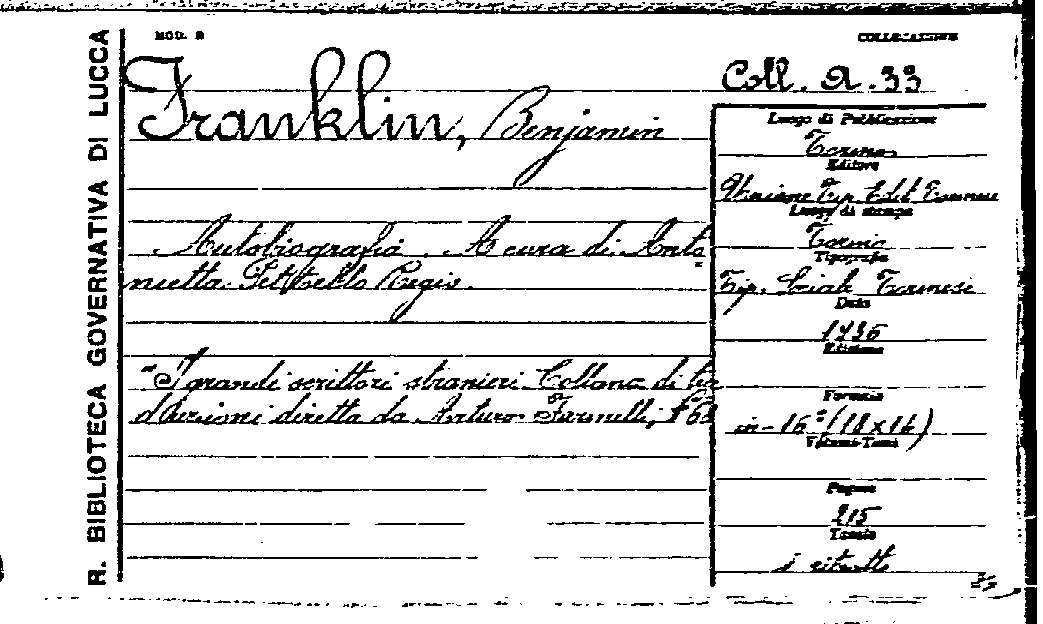 R. BIBLIOTECA GOVERNATIVA DI LUCCA
MOD. B
COLLOCAZIONE
Coll. A. 33
Franklin, Benjamin
Autobiografia. A cura di Anto
nietta Regis.
"I grandi scrittori stranieri. Collana di tra
duzioni diretta da Arturo Farinelli,
Luogo di Pubblicazione
Torino
Editore
Unione Tip. Edit. Torinese
Luogo di stampa
Torino
Tipografia
Tip. Torinese
Data
1936
Edizione
Formato
in-16°
Volumi-Tomi
Pagine
215
Tavole
1 ritratto